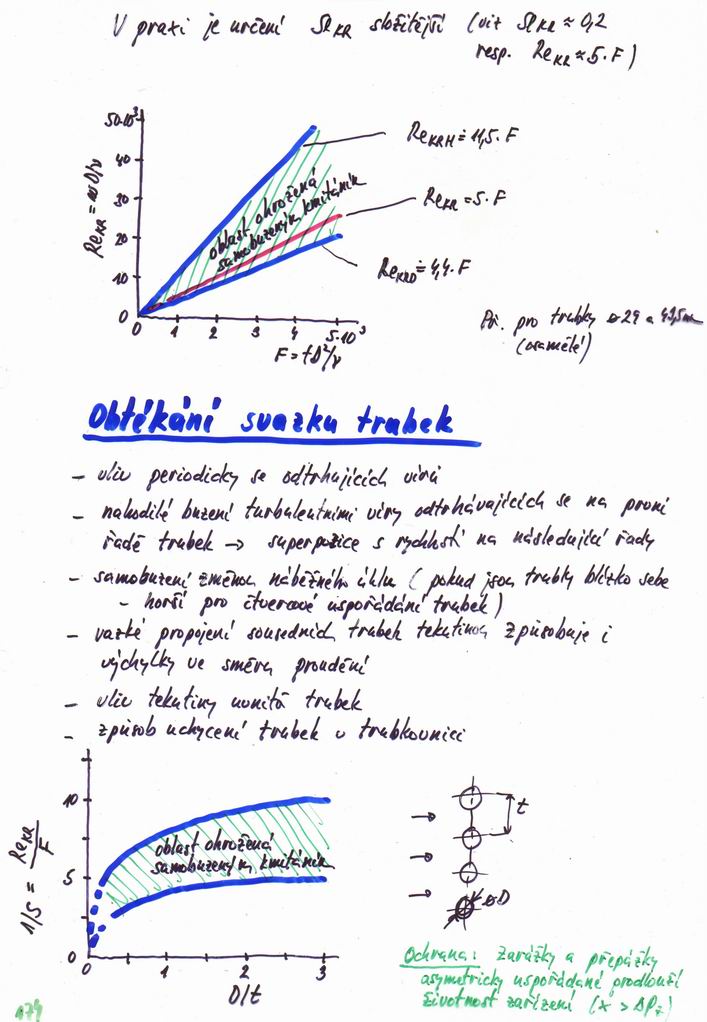 V praxi je určení Sh_KR složitější (viz Sh_KR ≈ 0,2
resp. Re_KR ≈ 5·F)
50·10³
40
30
20
10
0
Re_KR = wD/ν
0 1 2 3 4 5·10³
F = fD²/ν
oblast ohrožená
samobuzeným kmitáním
Re_KRH ≐ 11,5·F
Re_KR = 5·F
Re_KRD ≐ 4,4·F
Př. pro trubky ø 29 a
(osamělé)
Obtékání svazku trubek
– vliv periodicky se odtrhajících vírů
– nahodilé buzení turbulentními víry odtrhávajících se na první
řadě trubek → superpozice s rychlostí na následující řady
– samobuzení změnou náběžného úhlu (pokud jsou trubky blízko sebe
– horší pro čtvercové uspořádání trubek)
– vazké propojení sousedních trubek tekutinou způsobuje i
výchylky ve směru proudění
– vliv tekutiny uvnitř trubek
– způsob uchycení trubek v trubkovnici
10
5
0
1/S = Re_KR/F
0 1 2 3
D/t
oblast ohrožená
samobuzeným kmitáním
t
øD
Ochrana: zarážky a přepážky
asymetricky uspořádané prodlouží
životnost zařízení (x > ΔP_z)
174